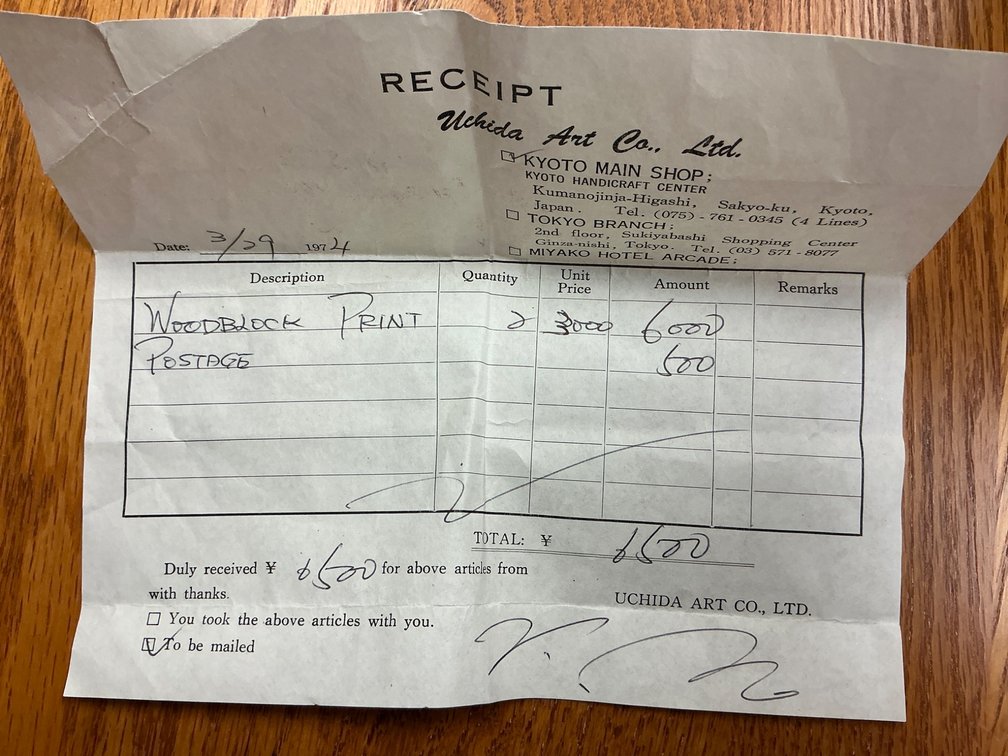 RECEIPT
Uchida Art Co., Ltd.
KYOTO MAIN SHOP;
KYOTO HANDICRAFT CENTER
Kumanojinja-Higashi, Sakyo-ku, Kyoto,
Japan. Tel. (075)-761-0345 (4 Lines)
TOKYO BRANCH;
2nd floor, Sukiyabashi Shopping Center
Ginza-nishi, Tokyo. Tel. (03) 571-8077
MIYAKO HOTEL ARCADE;
Date: 3/29 1974
Description Quantity Unit Price Amount Remarks
WOODBLOCK PRINT 2 3000 6000
POSTAGE 500
TOTAL: ¥ 6500
Duly received ¥ 6500 for above articles from
with thanks.
UCHIDA ART CO., LTD.
You took the above articles with you.
To be mailed